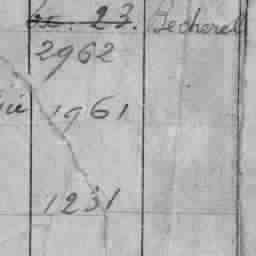 23. Becherel
2962
1961
1231